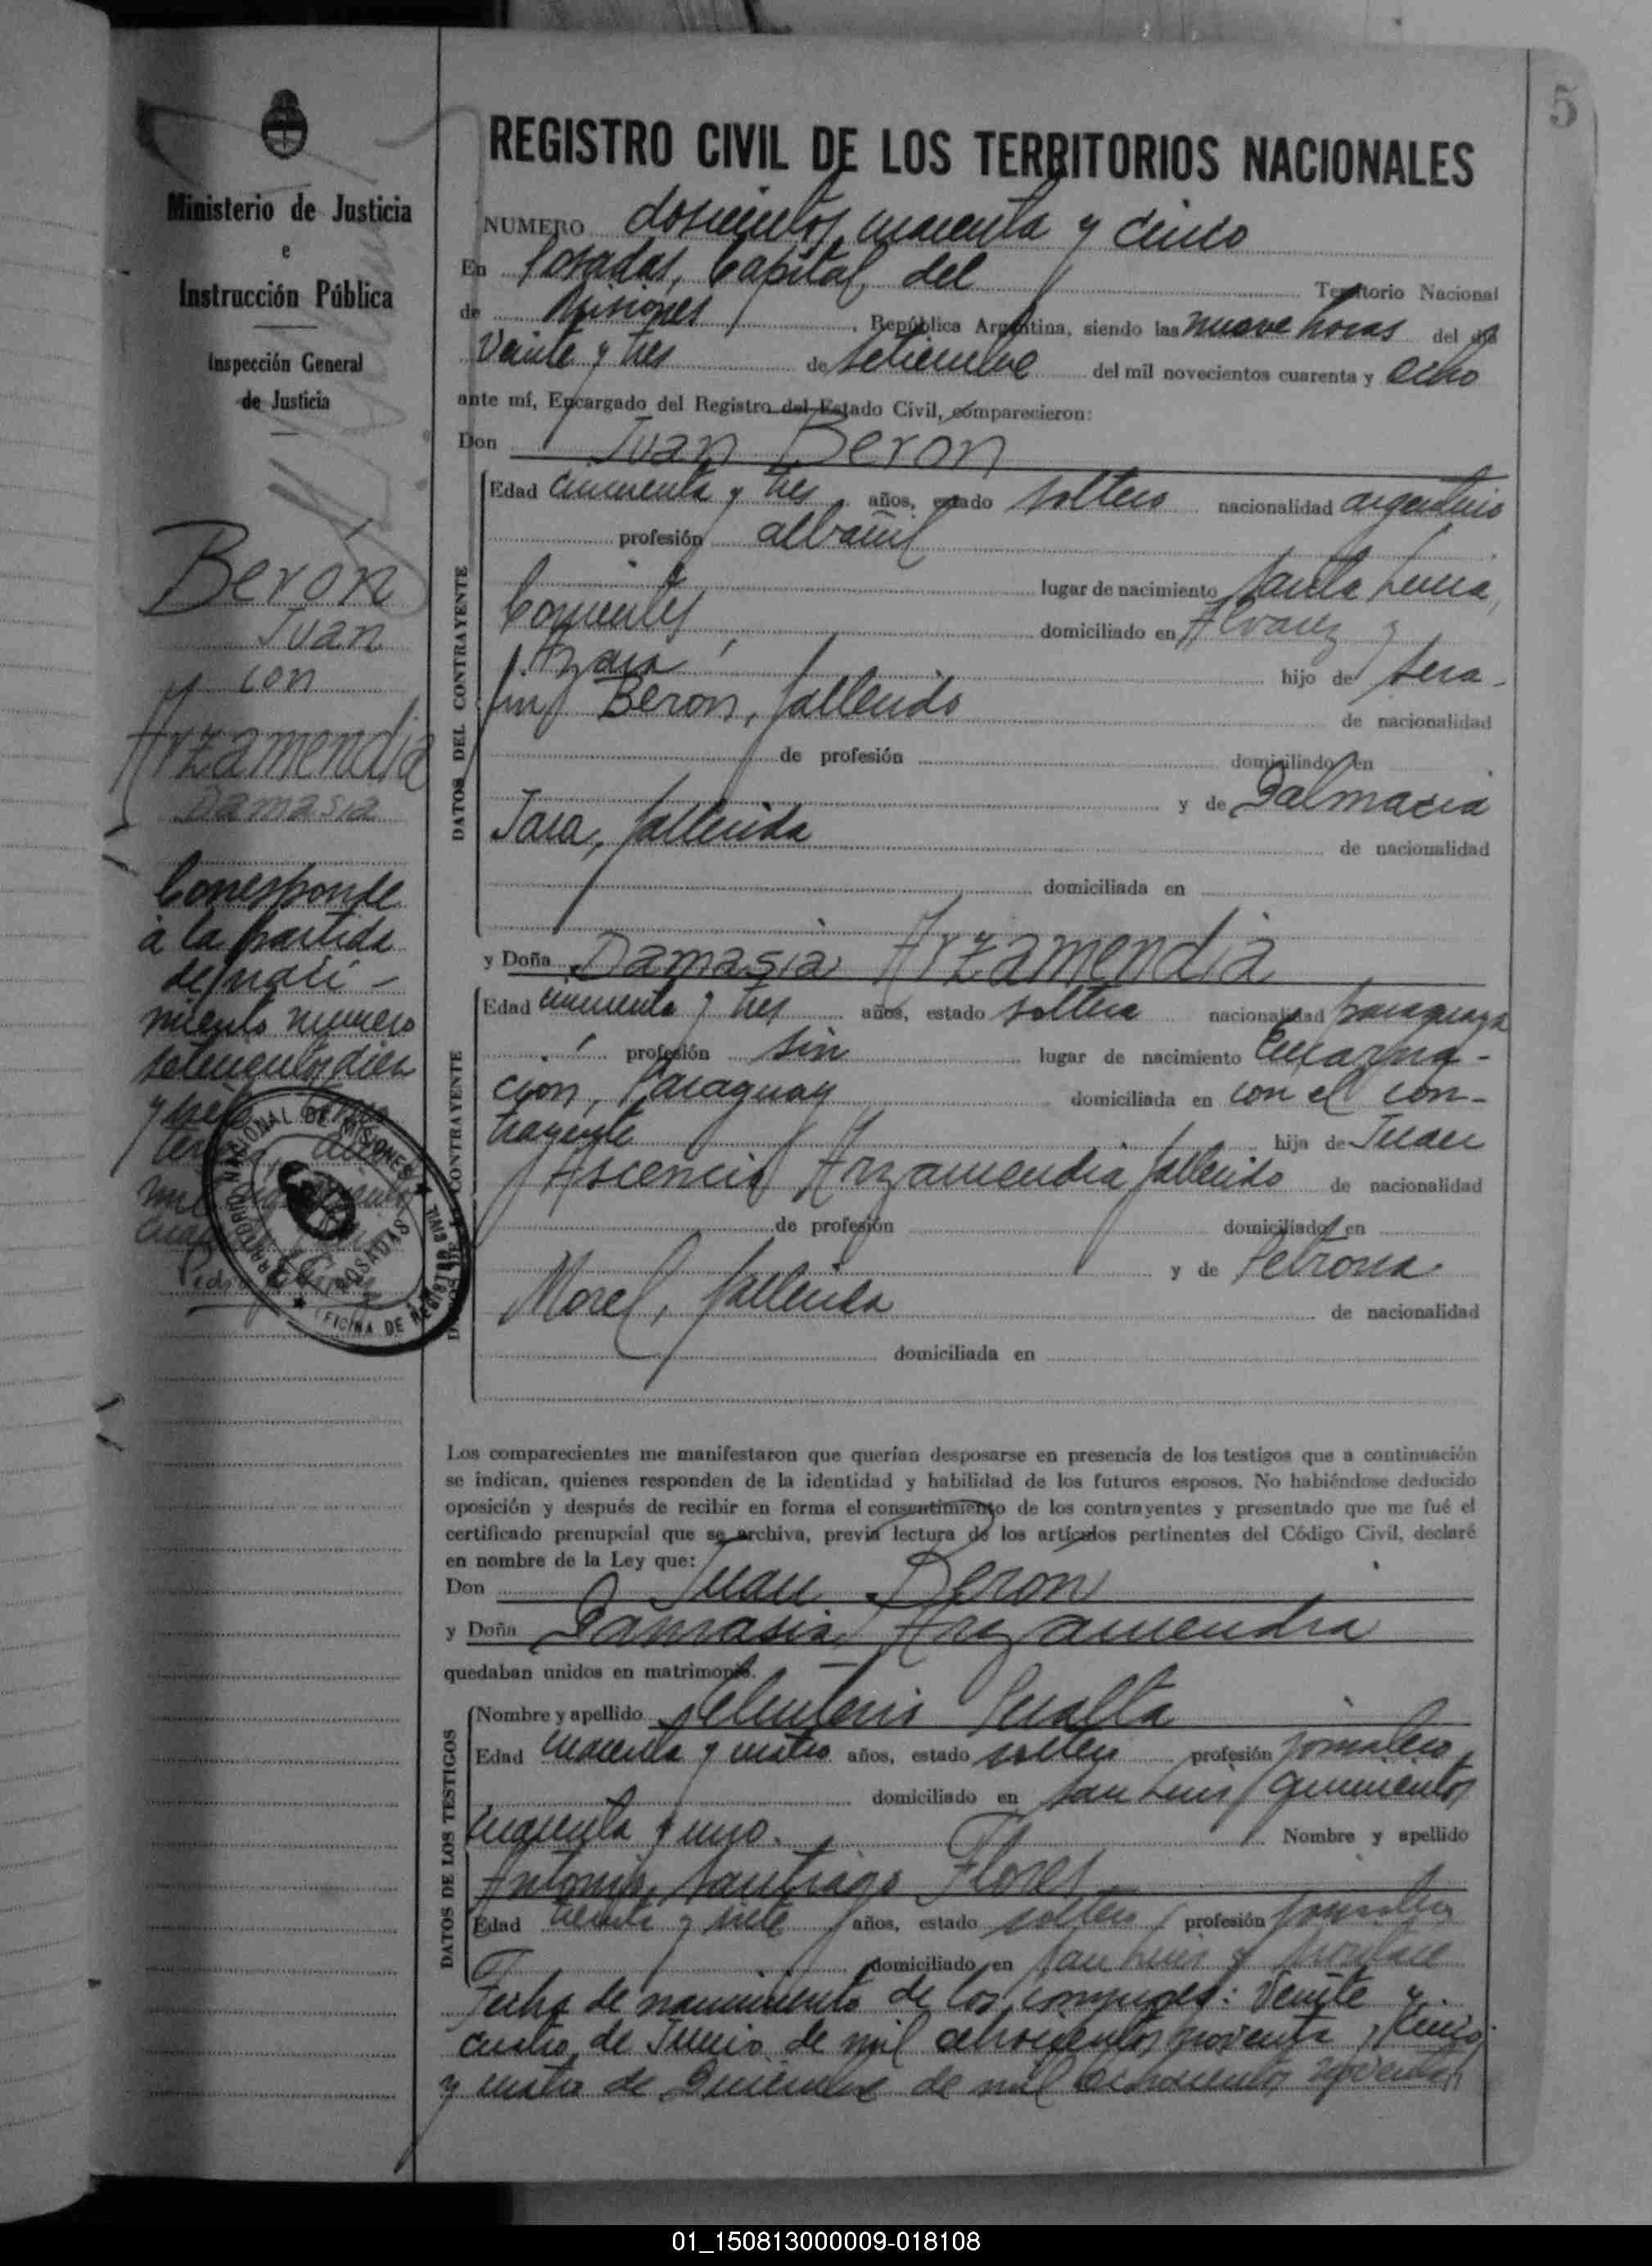 5
Ministerio de Justicia
e
Instrucción Pública
Inspección General
de Justicia
Berón
Juan
con
Arzamendia
Damasia
Corresponde
a la partida
de naci-
miento número
setecientos diez
y siete
REGISTRO CIVIL DE LOS TERRITORIOS NACIONALES
NUMERO doscientos cuarenta y cinco
En Posadas, Capital del Territorio Nacional
de Misiones, República Argentina, siendo las nueve horas del día
Veinte y tres de setiembre del mil novecientos cuarenta y ocho
ante mí, Encargado del Registro del Estado Civil, comparecieron:
Don Juan Berón
DATOS DEL CONTRAYENTE
Edad cincuenta y tres años, estado soltero nacionalidad argentino
profesión albañil
lugar de nacimiento Santa Lucia,
Corrientes domiciliado en Alvarez y
hijo de Sera-
fin Beron, fallecido de nacionalidad
de profesión domiciliado en
y de Dalmacia
Jara, fallecida de nacionalidad
domiciliada en
y Doña Damasia Arzamendia
CONTRAYENTE
Edad cincuenta y tres años, estado soltera nacionalidad paraguaya
profesión sin lugar de nacimiento Encarna-
ción, Paraguay domiciliada en con el con-
trayente hija de Juan
Ascencio Arzamendia fallecido de nacionalidad
de profesión domiciliado en
y de Petrona
Morel, fallecida de nacionalidad
domiciliada en
NACIONAL DE MISIONES
POSADAS
OFICINA DE REGISTRO CIVIL
Los comparecientes me manifestaron que querían desposarse en presencia de los testigos que a continuación
se indican, quienes responden de la identidad y habilidad de los futuros esposos. No habiéndose deducido
oposición y después de recibir en forma el consentimiento de los contrayentes y presentado que me fué el
certificado prenupcial que se archiva, previa lectura de los artículos pertinentes del Código Civil, declaré
en nombre de la Ley que:
Don Juan Beron
y Doña Damasia Arzamendia
quedaban unidos en matrimonio.
DATOS DE LOS TESTIGOS
Nombre y apellido Eleuterio Peralta
Edad cuarenta y cuatro años, estado soltero profesión jornalero,
domiciliado en San Luis quinientos
cincuenta y uno. Nombre y apellido
Antonio Santiago Flores
Edad treinta y siete años, estado soltero profesión jornalero
domiciliado en San Luis y
Fecha de nacimiento de los conyuges: Veinte y
cuatro de Junio de mil ochocientos noventa y cinco
y cuatro de Diciembre de mil ochocientos noventa
01_150813000009-018108